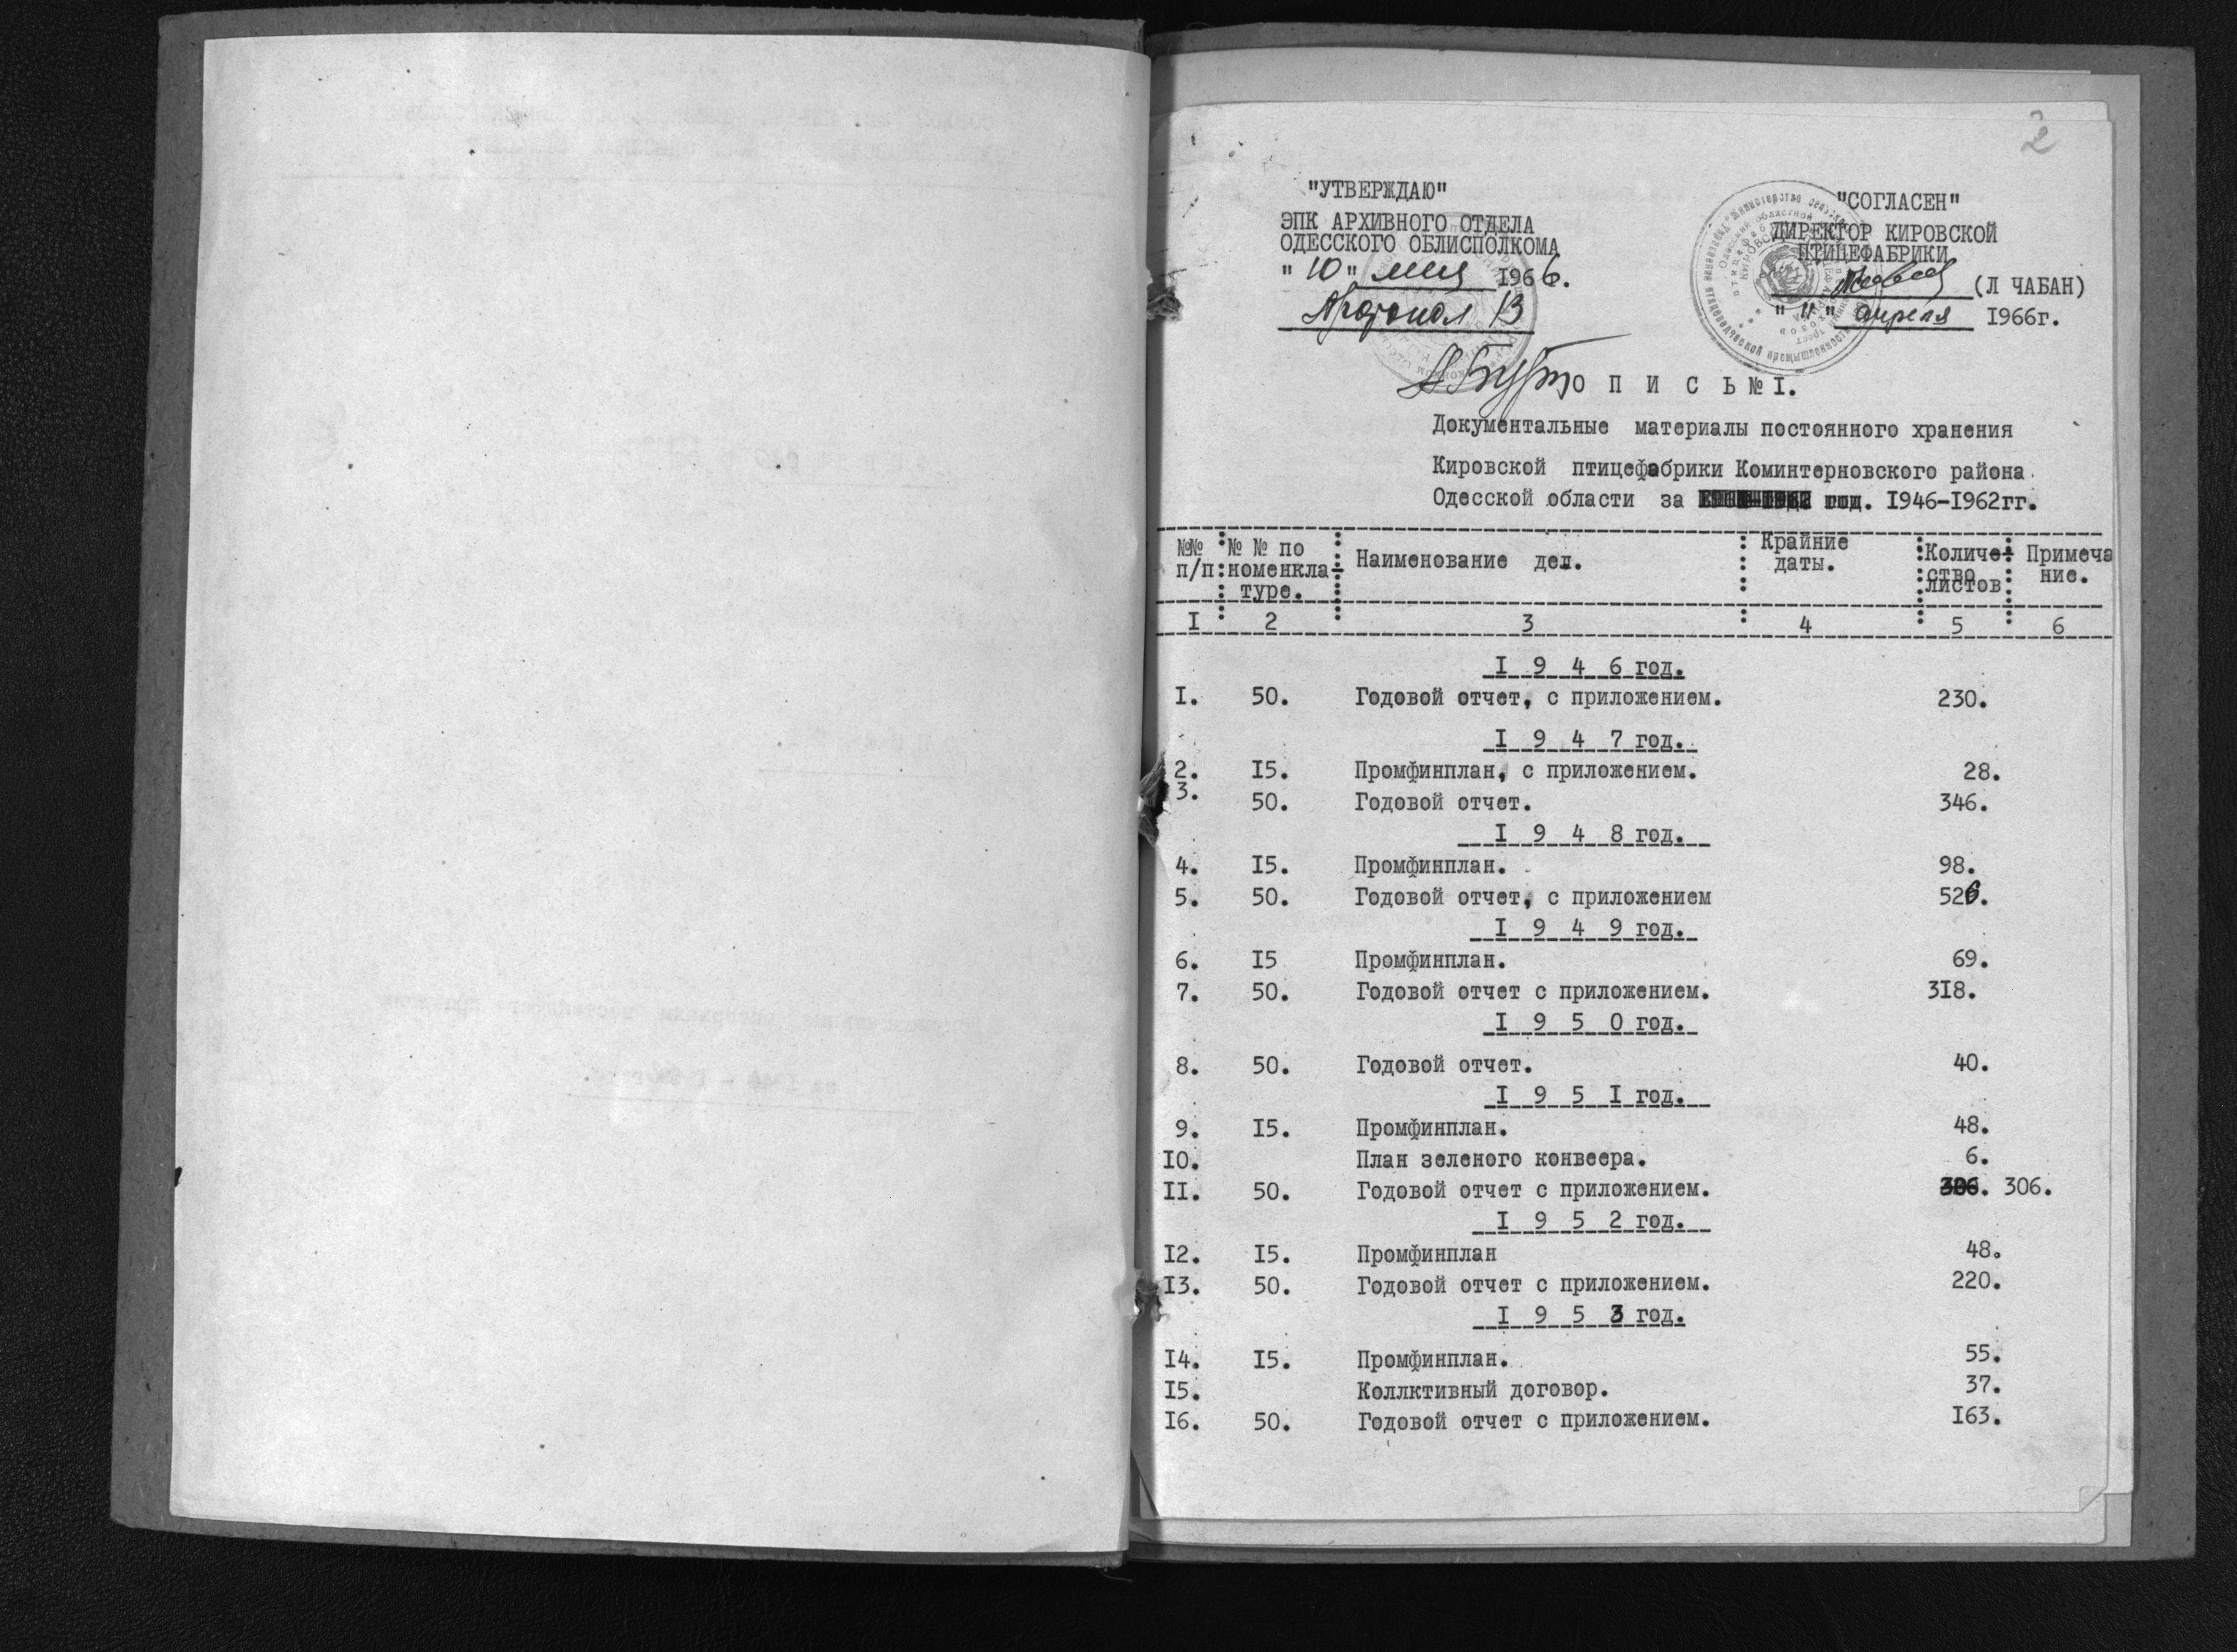 2
"УТВЕРЖДАЮ"
ЭПК АРХИВНОГО ОТДЕЛА
ОДЕССКОГО ОБЛИСПОЛКОМА
"10" мая 1966.
Протокол 13
"СОГЛАСЕН"
ДИРЕКТОР КИРОВСКОЙ
ПТИЦЕФАБРИКИ
(Л ЧАБАН)
"11" апреля I966г.
О П И С Ь № I.
Документальные материалы постоянного хранения
Кировской птицефабрики Коминтерновского района
Одесской области за год. I946-I962гг.
№№ п/п : № № по номенкла-туре. : Наименование дел. : Крайние даты. : Количе-ство листов : Примеча ние.
I : 2 : 3 : 4 : 5 : 6
I 9 4 6 год.
I. 50. Годовой отчет, с приложением. 230.
I 9 4 7 год.
2. I5. Промфинплан, с приложением. 28.
3. 50. Годовой отчет. 346.
I 9 4 8 год.
4. I5. Промфинплан. 98.
5. 50. Годовой отчет, с приложением 526.
I 9 4 9 год.
6. I5 Промфинплан. 69.
7. 50. Годовой отчет с приложением. 3I8.
I 9 5 0 год.
8. 50. Годовой отчет. 40.
I 9 5 I год.
9. I5. Промфинплан. 48.
I0. План зеленого конвеера. 6.
II. 50. Годовой отчет с приложением. 306.
I 9 5 2 год.
I2. I5. Промфинплан 48.
I3. 50. Годовой отчет с приложением. 220.
I 9 5 3 год.
I4. I5. Промфинплан. 55.
I5. Коллктивный договор. 37.
I6. 50. Годовой отчет с приложением. I63.